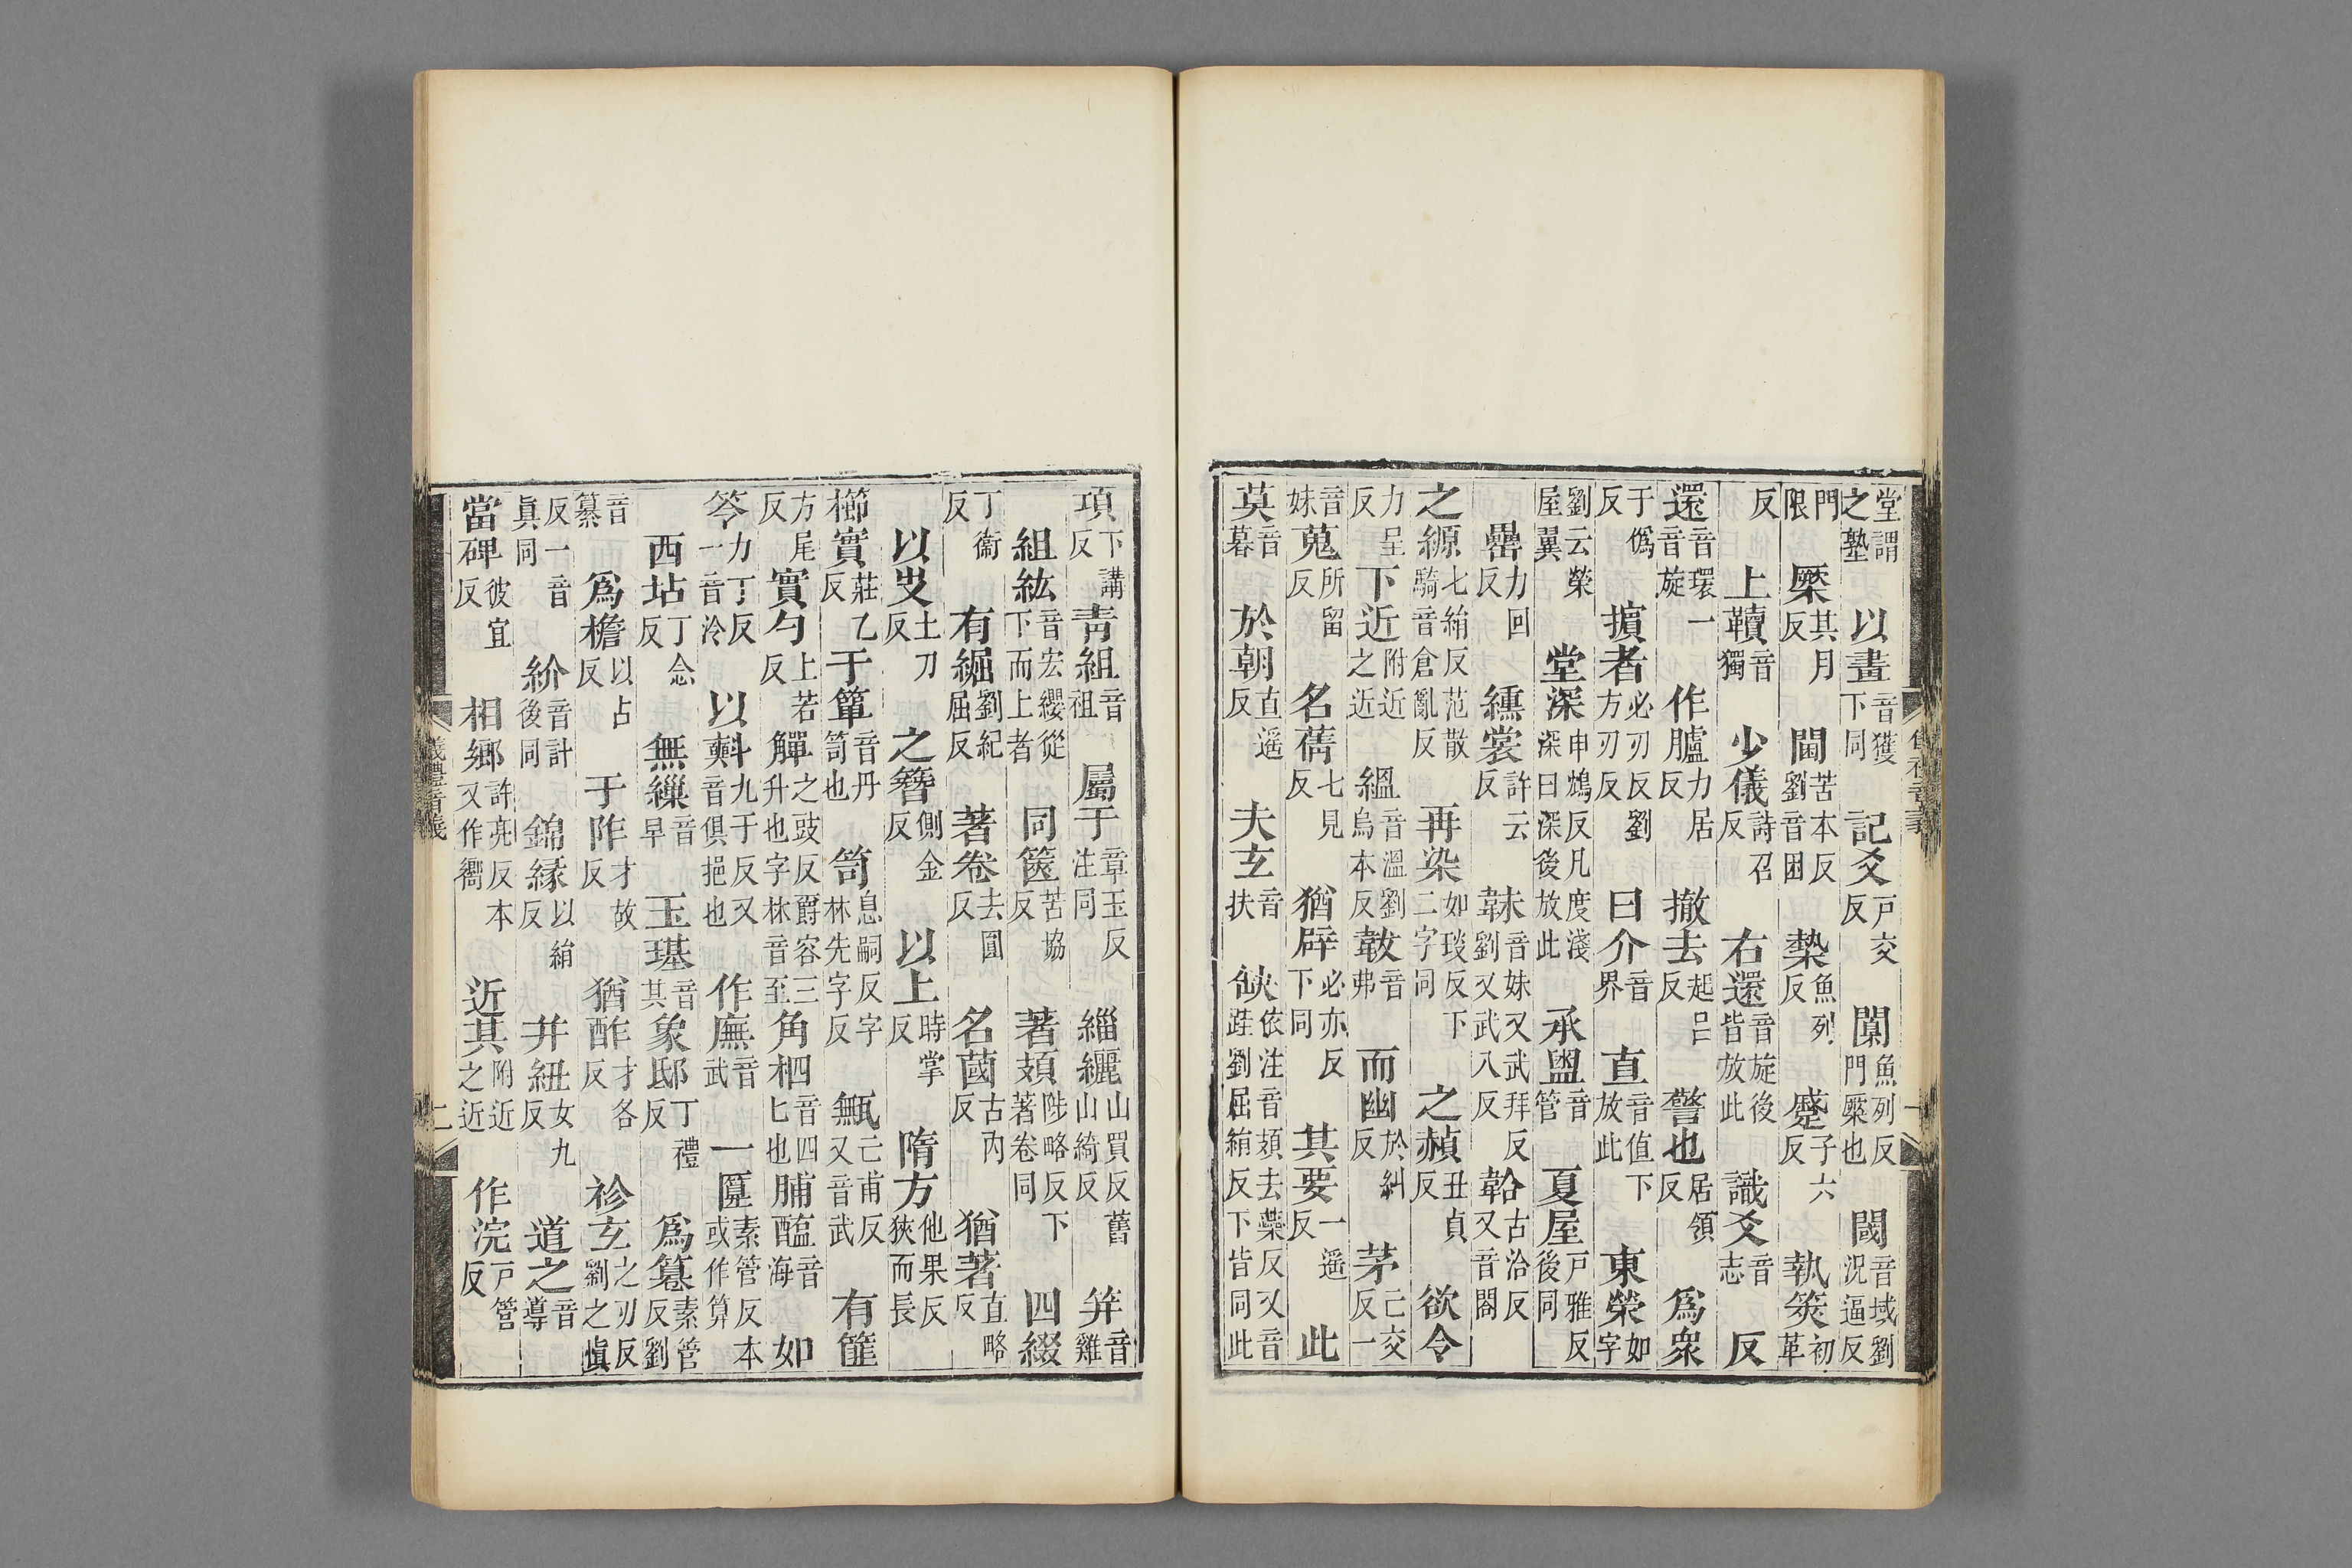 堂謂之塾以畫音獲下同記爻戶交反闑魚列反門橜也閾音域劉況逼反
門限橜其月反閫苦本反劉音困槷魚列反蹙子六反執筴初革
反上韇音獨少儀詩召反右還音旋後皆放此識爻音志反
還音環一音旋作臚力居反撤去起呂反警也居領反爲衆
于僞反擯者必刃反劉方刃反曰介音界直音值下放此東榮如字
劉云榮屋翼堂深申鴆反凡度淺深曰深後放此承盥音管夏屋戶雅反後同
罍力回反纁裳許云反韎音妹又武拜反劉又武八反韐古洽反又音閤
之縓七絹反范散騎音倉亂反再染如琰反下二字同之赬丑貞反欲令
力呈反下近附近之近縕音溫劉烏本反韍音弗而幽於糾反茅亡交反一
音妹蒐所留反名蒨七見反猶辟必亦反下同其要一遥反此
莫音暮於朝直遥反夫玄音扶缺依注音頍去蘂反又音跬劉屈絹反下皆同此
項下講反青組音祖屬于章玉反注同緇纚山買反舊山綺反筓音雞
組紘音宏纓從下而上者同篋苦協反著頍陟略反下著卷同四綴
丁衞反有緇劉紀屈反著卷去圓反名蔮古內反猶著直略反
以叏土刀反之簪側金反以上時掌反隋方他果反狹而長
櫛實莊乙反于簞音丹笥也笥息嗣反字林先字反甒亡甫反又音武有篚
方尾反實勺上若反觶之豉反爵容三升也字林音至角柶音四匕也脯醢音海如
笭力丁反一音泠以㪺九于反又音俱挹也作廡音武一匴素管反本或作算
西坫丁念反無繅音早玉璂音其象邸丁禮反爲篹素管反劉
音纂爲檐以占反于阼才故反猶酢才各反袗玄之刃反劉之愼
反一音眞同紒音計後同錦緣以絹反并紐女九反道之音導
當碑彼宜反相鄉許亮反本又作嚮近其附近之近作浣戶管反
儀禮音義
二